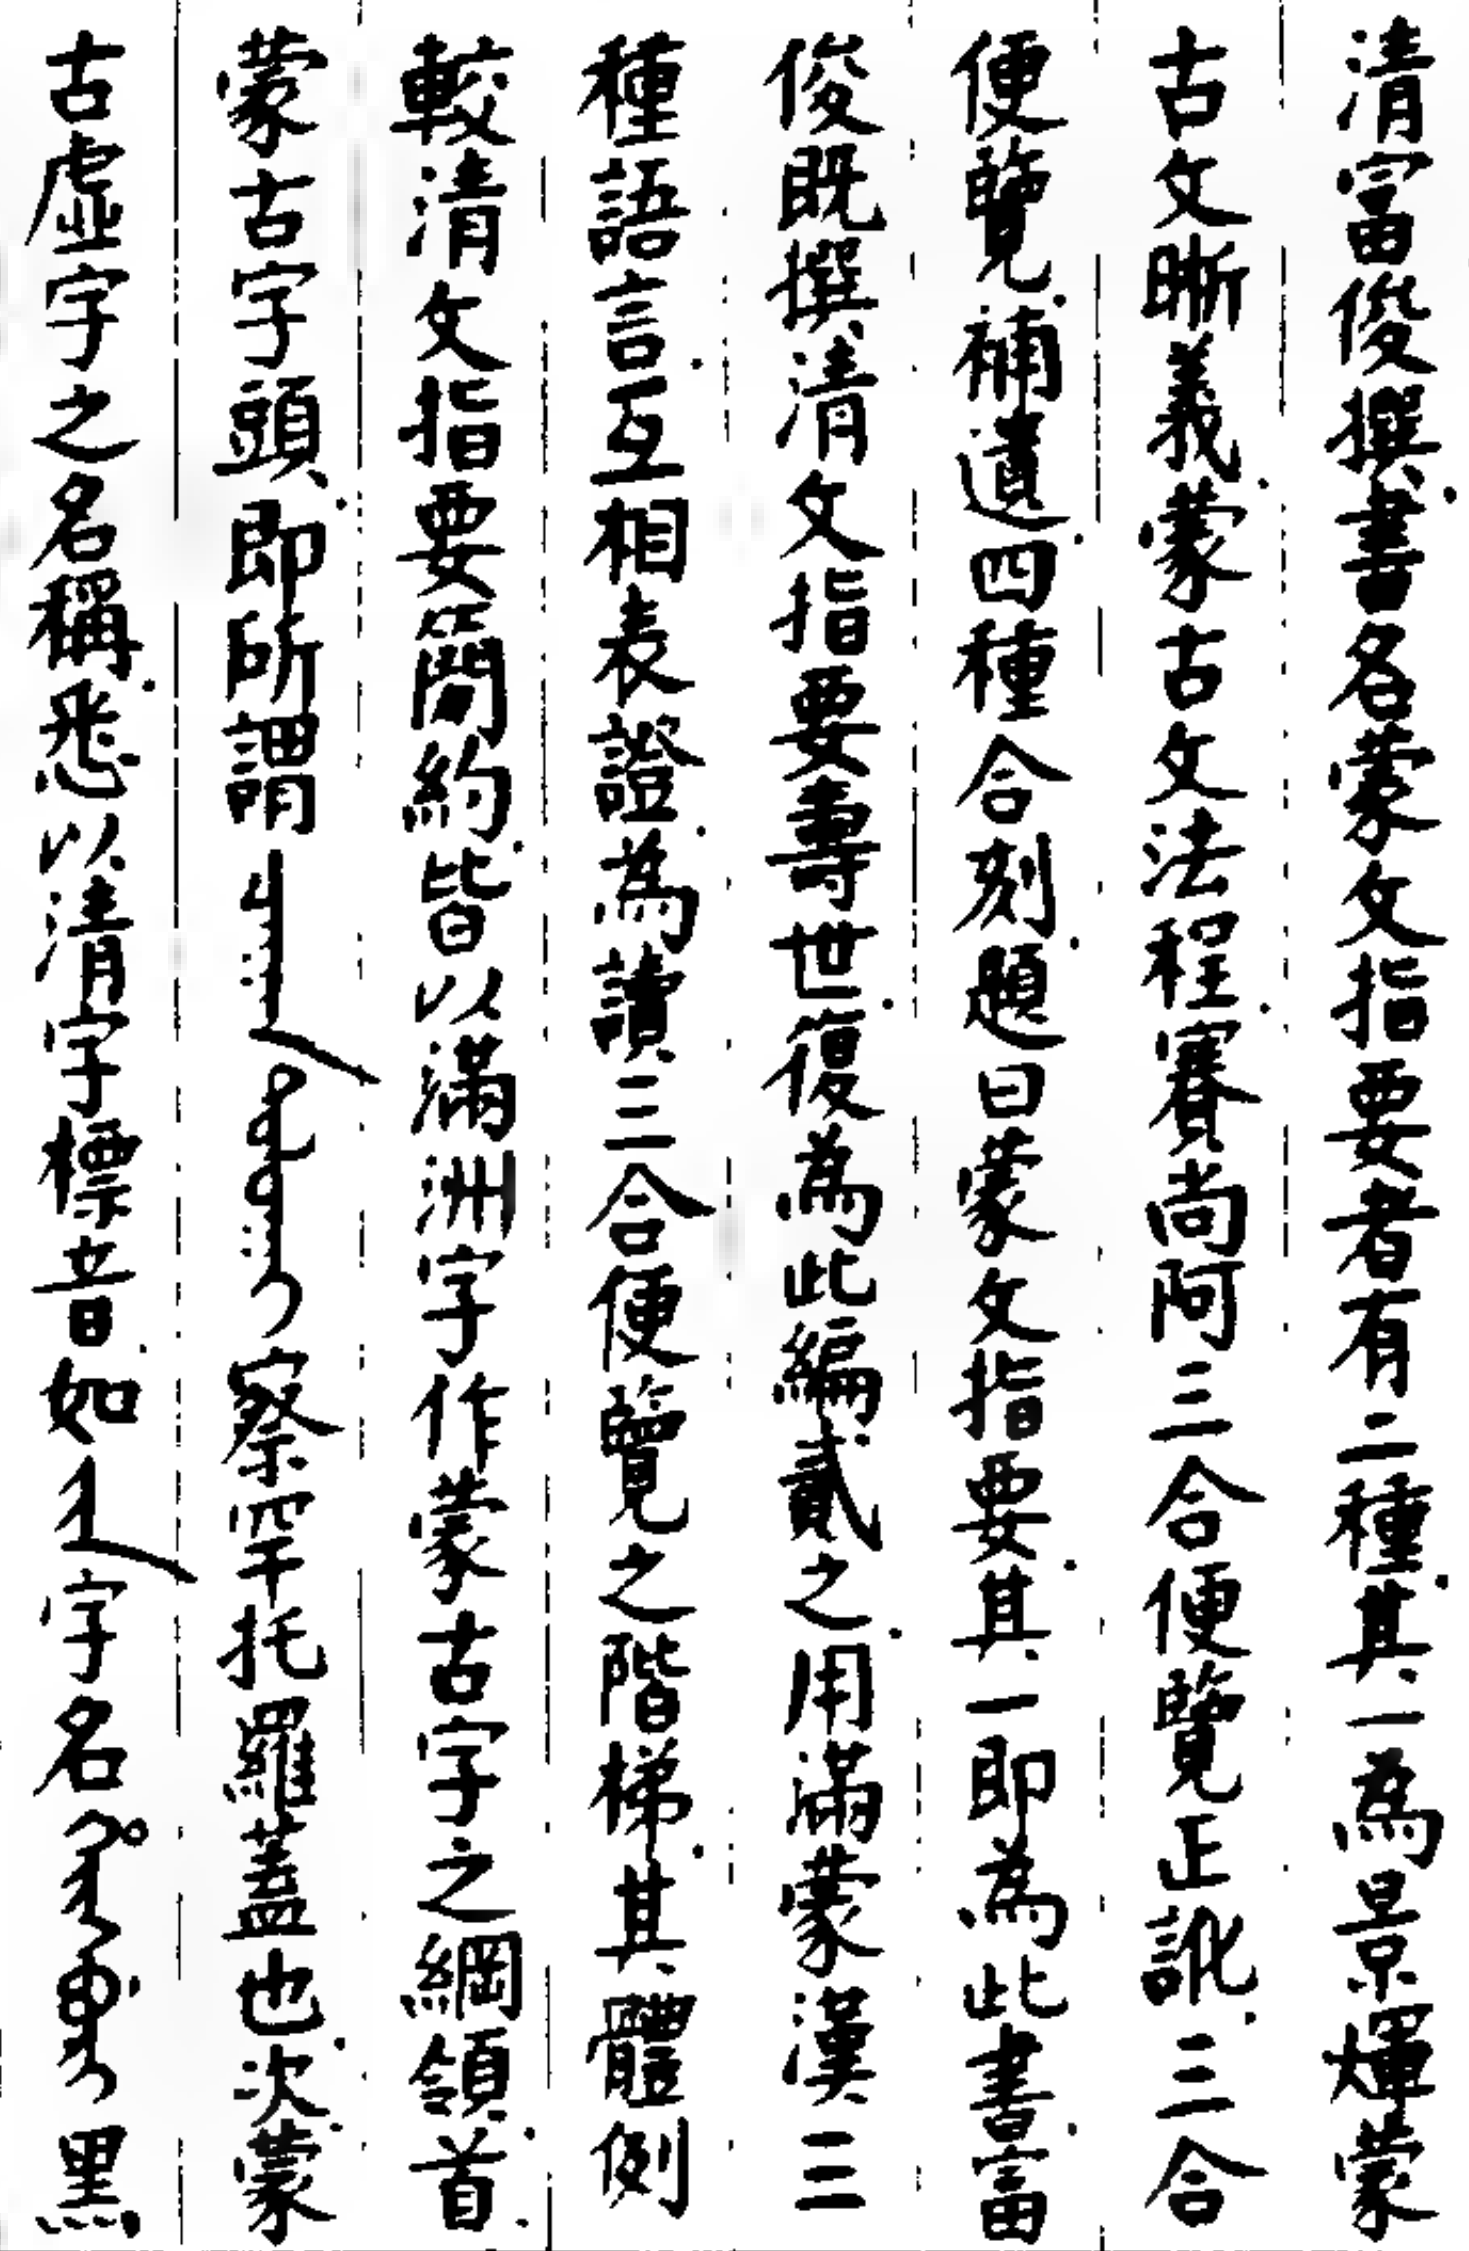 清富俊撰．書名蒙文指要者有二種．其一為景煇蒙
古文晰義．蒙古文法程．賽尚阿三合便覽正訛．三合
便覽．補遺．四種合刻．題曰蒙文指要．其一即為此書．富
俊既撰清文指要壽世．復為此編貳之．用滿蒙漢三
種語言．互相表證．為讀三合便覽之階梯．其體例
較清文指要簡約．皆以滿洲字作蒙古字之綱領．首
蒙古字頭．即所謂察罕托羅蓋也．次．蒙
古虛字之名稱．悉以清字標音．如字名黑